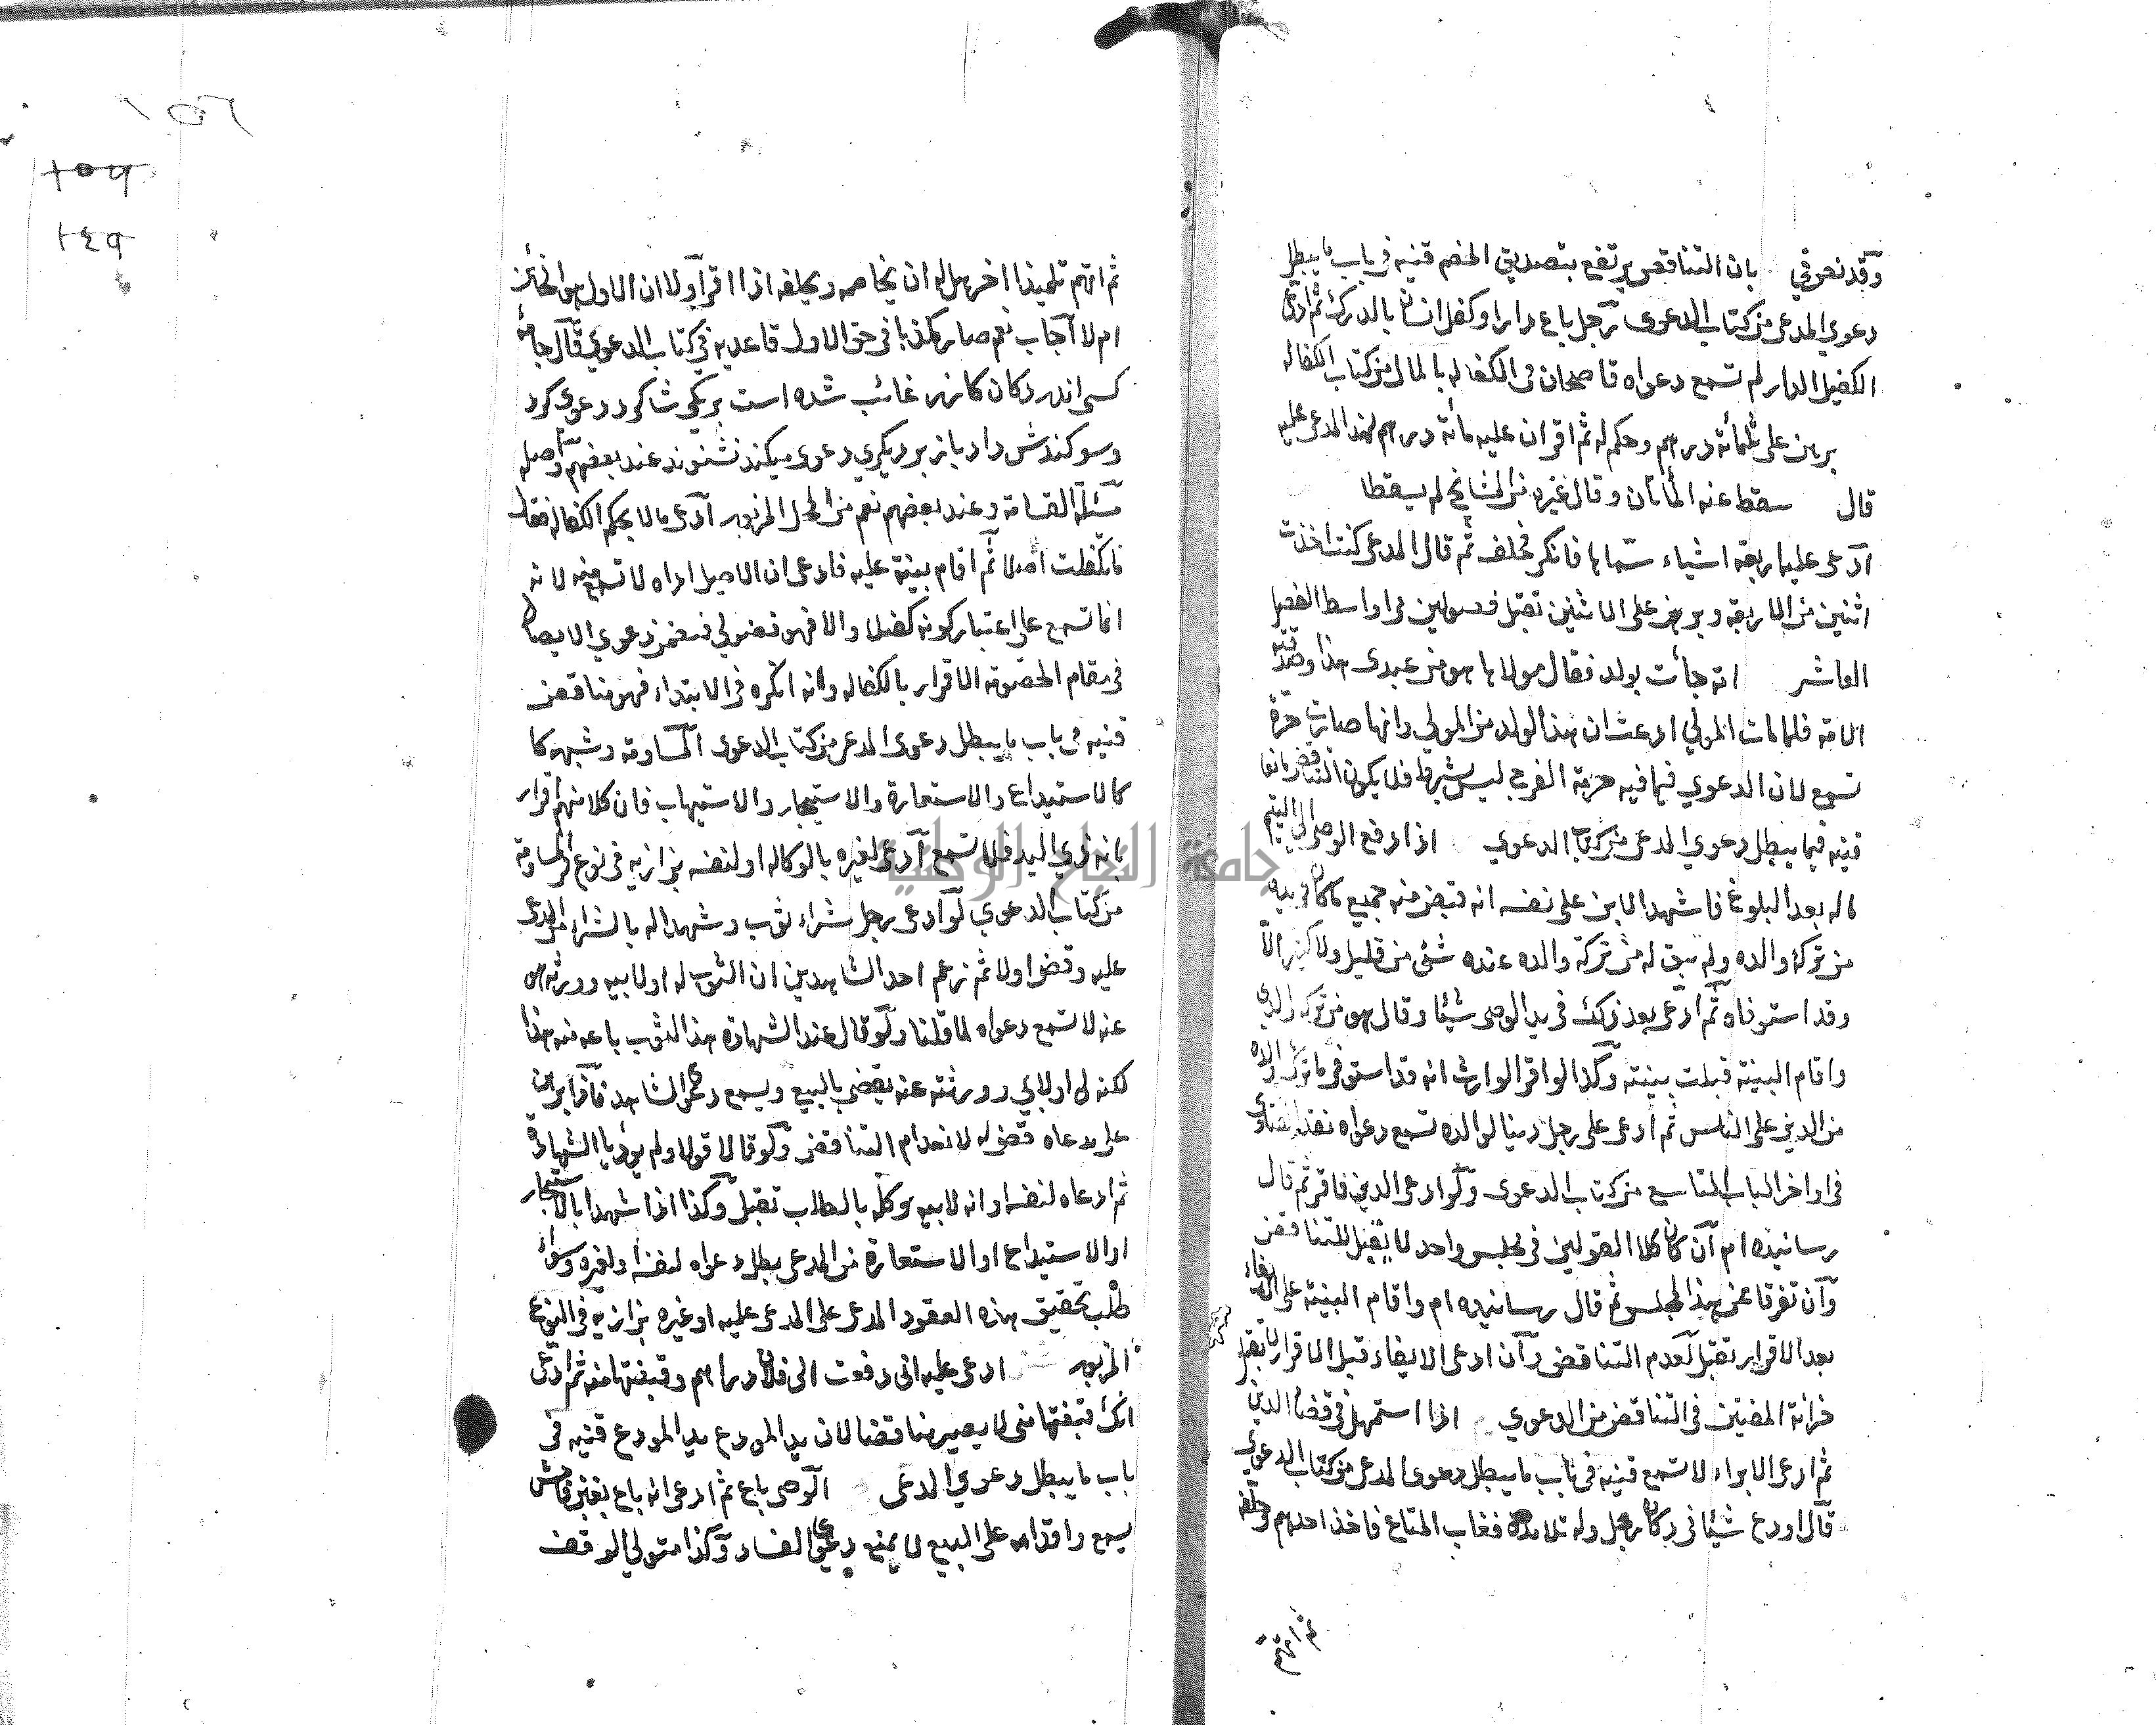 وقد نص في بان التناقض يرتفع بتصديق الخصم قنيه في باب ما يبطل
دعوي المدعى من كتاب الدعوى رجل باع دارا وكفل انسان بالدرك ثم ادعى
الكفيل الدار لم تسمع دعواه قاضحان فى الكفاله بالمال من كتاب الكفاله
برهن على ثلمائة درهم وحكم له ثم اقر ان عليه مائة درهم لهذا المدعى عليه
قال سقط عنه المأتان وقال غيره من المشايخ لم يسقطا
ادعى عليه اربعة اشياء سماها فانكر فحلف ثم قال المدعى كنت اخذت
اثنين من الاربعة وبرهن على الاثنين تقبل فصولين فى اواسط الفصل
العاشر انه جأت بولد فقال مولاها هو من عبدى هذا وصدقته
الامة فلما مات المولي ادعت ان هذا الولد من المولي وانها صارت حرة
تسمع لان الدعوي فيما فيه حرمة الفرج ليس بشرط فلا يكون التناقض مانعا
قنيه فيما يبطل دعوي المدعى من كتاب الدعوي اذا دفع الوصى الى اليتيم
ماله بعد البلوغ فاشهد الابن على نفسه انه قبض منه جميع ما كان فى يده
من تركة والده ولم يبق له من تركة والده عنده شئ من قليل ولا كثير الا
وقد استوفاه ثم ادعى بعد ذلك فى يد الوصى شيئا وقال هو من تركة والدي
واقام البينة قبلت بينته وكذا لو اقر الوارث انه قد استوفى ما ترك والده
من الدين على الناس ثم ادعى على رجل دينا لوالده تسمع دعواه نقد الفتاوى
فى اواخر الباب التاسع من كتاب الدعوى ولو ادعى الدين فاقر ثم قال
رسانيده ام ان كان كلا القولين فى مجلس واحد لا يقبل للتناقض
وان تفرقا عن هذا المجلس ثم قال رسانيده ام واقام البينة على الايفاء
بعد الاقرار تقبل لعدم التناقض وان ادعى الايفاء قبل الاقرار لا تقبل
خزانة المفتين فى التناقض من الدعوي اذا استمهل فى قضاء الدين
ثم ادعى الابراء لا تسمع قنيه فى باب ما يبطل دعوى المدعى من كتاب الدعوي
قال اودع شيئا فى دكان رجل وله تلامذه فغاب المتاع فاخذ احدهم وحلفه
ثم اتهم
ثم اتهم تلميذا اخر هل له ان يخاصمه ويحلفه اذا اقر اولا ان الاول هو الخائن
ام لا اجاب نعم صار مكذبا فى حق الاول قاعديه فى كتاب الدعوي قال جامه
كسى اندر دكان كازر غائب شده است بر يكى شاكرد دعوى كرد
وسوكندش داد باز بر ديكري دعوى ميكند نشنوند عند بعضهم واصله
مسئلة القسامة وعند بعضهم نعم من المحل المزبور ادعى مالا بحكم الكفاله فقال
ما تكفلت اصلا ثم اقام بينة عليه فادعى ان الاصيل اداه لا تسمع منه لانه
انما تسمع على اعتبار كونه كفيلا والا فهو فضولي فيضمن دعوي الايصال
فى مقام الخصومة الاقرار بالكفاله وانه انكره فى الابتداء فهو مناقض
قنيه فى باب ما يبطل دعوى المدعى من كتاب الدعوى المساومة وشبهه كا
كالاستيداع والاستعارة والاستيجار والاستيهاب فان كلا منهم اقرار
بانه لذي اليد فلا تسمع ادعى لغيره بالوكاله او لنفسه بزازيه فى نوع المساومة
من كتاب الدعوي لو ادعى رجل شراء ثوب وشهدا له بالشراء من المدعى
عليه وقضوا ولا ثم زعم احد الشاهدين ان الثوب له اولابيه وورثه هو
عنه لا تسمع دعواه لما قلنا ولو قال عند الشهادة هذا الثوب باعه منه هذا
لكنه لى اولابي وورثته عنه يقضى بالبيع ويسمع دعوى الشاهد فاذا برهن
على مدعاه قضى له لانعدام التناقض ولو قالا قولا ولم يؤديا الشهادة
ثم ادعاه لنفسه او انه لابيه وكله بالطلب تقبل وكذا اذا شهدا بالاستيجار
او الاستيداع او الاستعارة من المدعى بطل دعواه لنفسه ولغيره وسواء
طلب تحقيق هذه العقود المدعى على المدعى عليه او غيره بزازيه فى النوع
المزبور ادعى عليه انى دفعت الى فلان دراهم وقبضتها منه ثم ادعى
انك قبضتها منى لا يصير مناقضا لان يد المودع يد المودع قنيه فى
باب ما يبطل دعوي المدعى الوصى باع ثم ادعى انه باع بغبن فاحش
يسمع واقدامه على البيع لا يمنع دعوى الفساد وكذا متولي الوقف
جامعة النجاح الوطنية